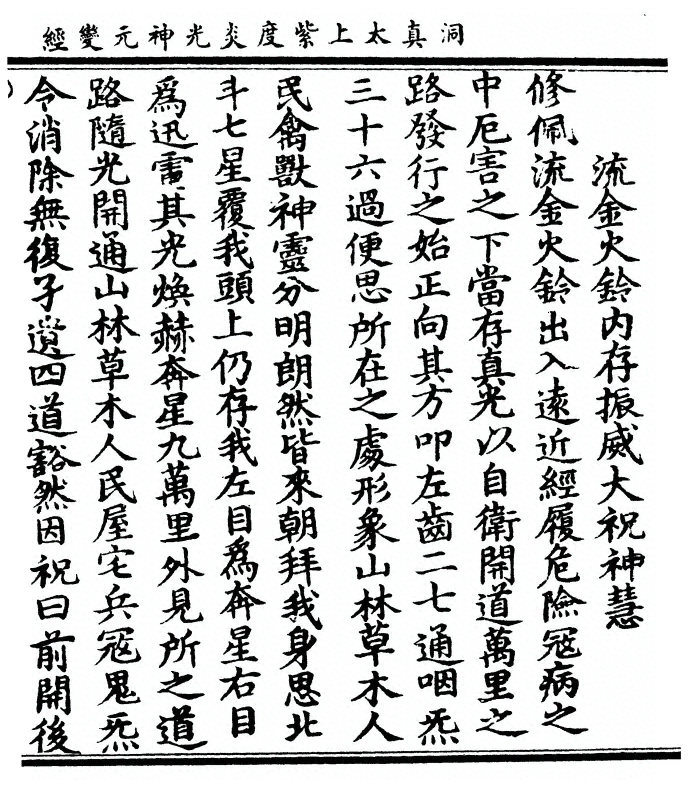 洞真太上紫度炎光神元變經
流金火鈴內存振威大祝神慧
修佩流金火鈴出入遠近經履危險冦病之
中厄害之下當存真光以自衛開道萬里之
路發行之始正向其方叩左齒二七通咽炁
三十六過便思所在之處形象山林草木人
民禽獸神靈分明朗然皆來朝拜我身思北
斗七星覆我頭上仍存我左目為奔星右目
為迅雷其光煥赫奔星九萬里外見所之道
路隨光開通山林草木人民屋宅兵冦鬼炁
令消除無復孑遺四道豁然因祝曰前開後